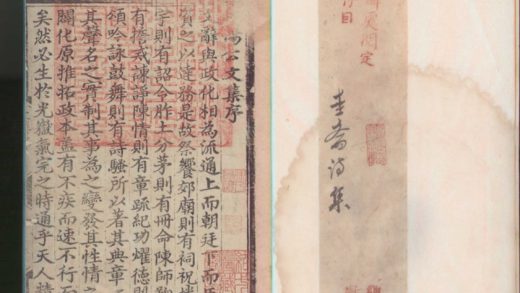 閣定
圭斋诗集
公文集序
文辭與政化相為流通上而朝廷下而
資之以達務是故祭饗郊廟則有祠祝
宇則有詔令胙土分茅則有冊命陳師
有戒諫諍陳情則有章疏紀功耀德則
頌吟詠鼓舞則有詩騷所以著其典章
其聲名之實制其事為之變發其性情之
闔化原推拓政本蓋有不疾而速不行而
矣然必生於光嶽氣完之時通乎天人精